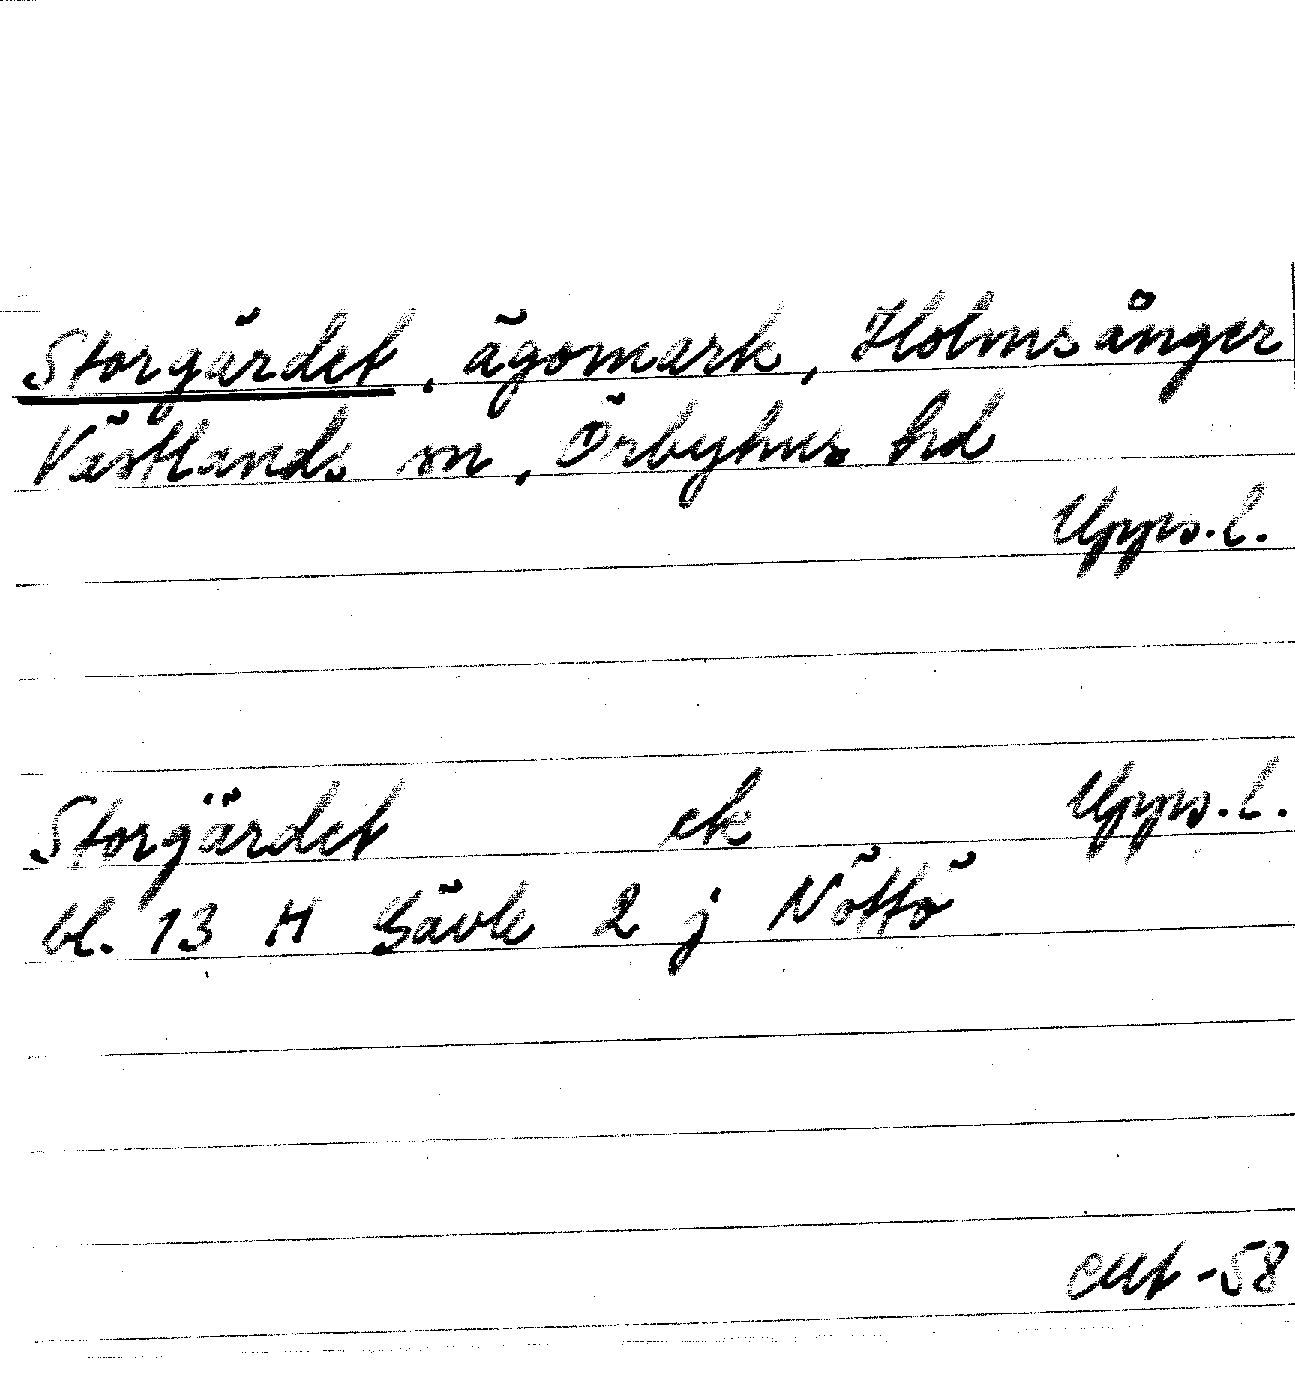 Storgärdet, ägomark, Holmsånger
Västlands sn, Örbyhus hd
Upps.l.
Storgärdet ek Upps.l.
bl. 13 H Gävle 2 j Nöttö
-58